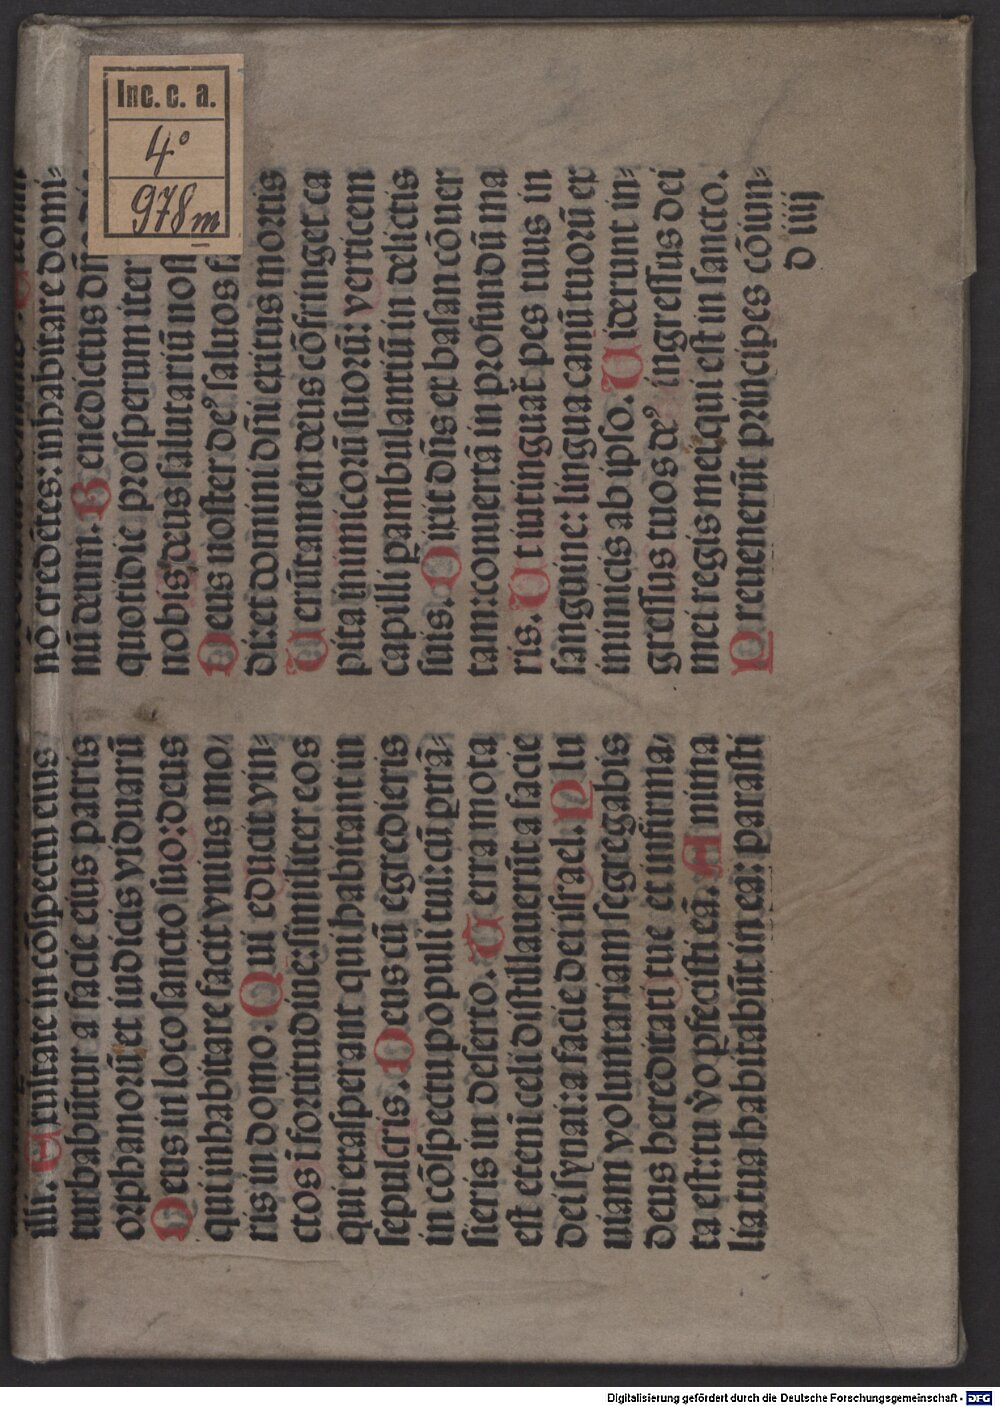 Inc. c. a.
4°
978 m
illi. Exultate in cōspectu eius
turbabūtur a facie eius patris
orphanorū: et iudicis viduarū
Deus in loco sancto suo: deus
qui inhabitare facit vnius mo/
ris in domo: Qui educit vin-
ctos ī fortitudine: similiter eos
qui exasperant qui habitant in
sepulcris. Deus cū egredieris
in cōspectu populi tui: cū ꝑtrā-
sieris in deserto. Terra mota
est etenī celi distillauerūt a facie
dei synai: a facie dei israel. Plu
uiam voluntariam segregabis
deus hereditati tue et infirma/
ta est: tu vo ꝑfecisti eā. Animna
lia tua habitabūt in ea: parasti
nō credētes: inhabitare domi-
nū deum. Benedictus dn̄s
quotidie prosperum iter
nobis deus salutariū nost
Deus noster deꝰ saluos fa
di: et domini dn̄i exitus mortis
Uerūtamen deus cōfringet ca
pita inimicorū suorū: verticem
capilli ꝑambulantiū in delictis
suis. Dixit dn̄s ex basan cōuer
tam: conuertā in profundū ma
ris. Ut intinguat̄ pes tuus in
sanguine: lingua canū tuorū ex
inimicis ab ipso. Uiderunt in-
gressus tuos deꝰ ingressus dei
mei regis mei: qui est in sancto.
Preuenerūt principes cōiun-
d iiij
Digitalisierung gefördert durch die Deutsche Forschungsgemeinschaft - DFG